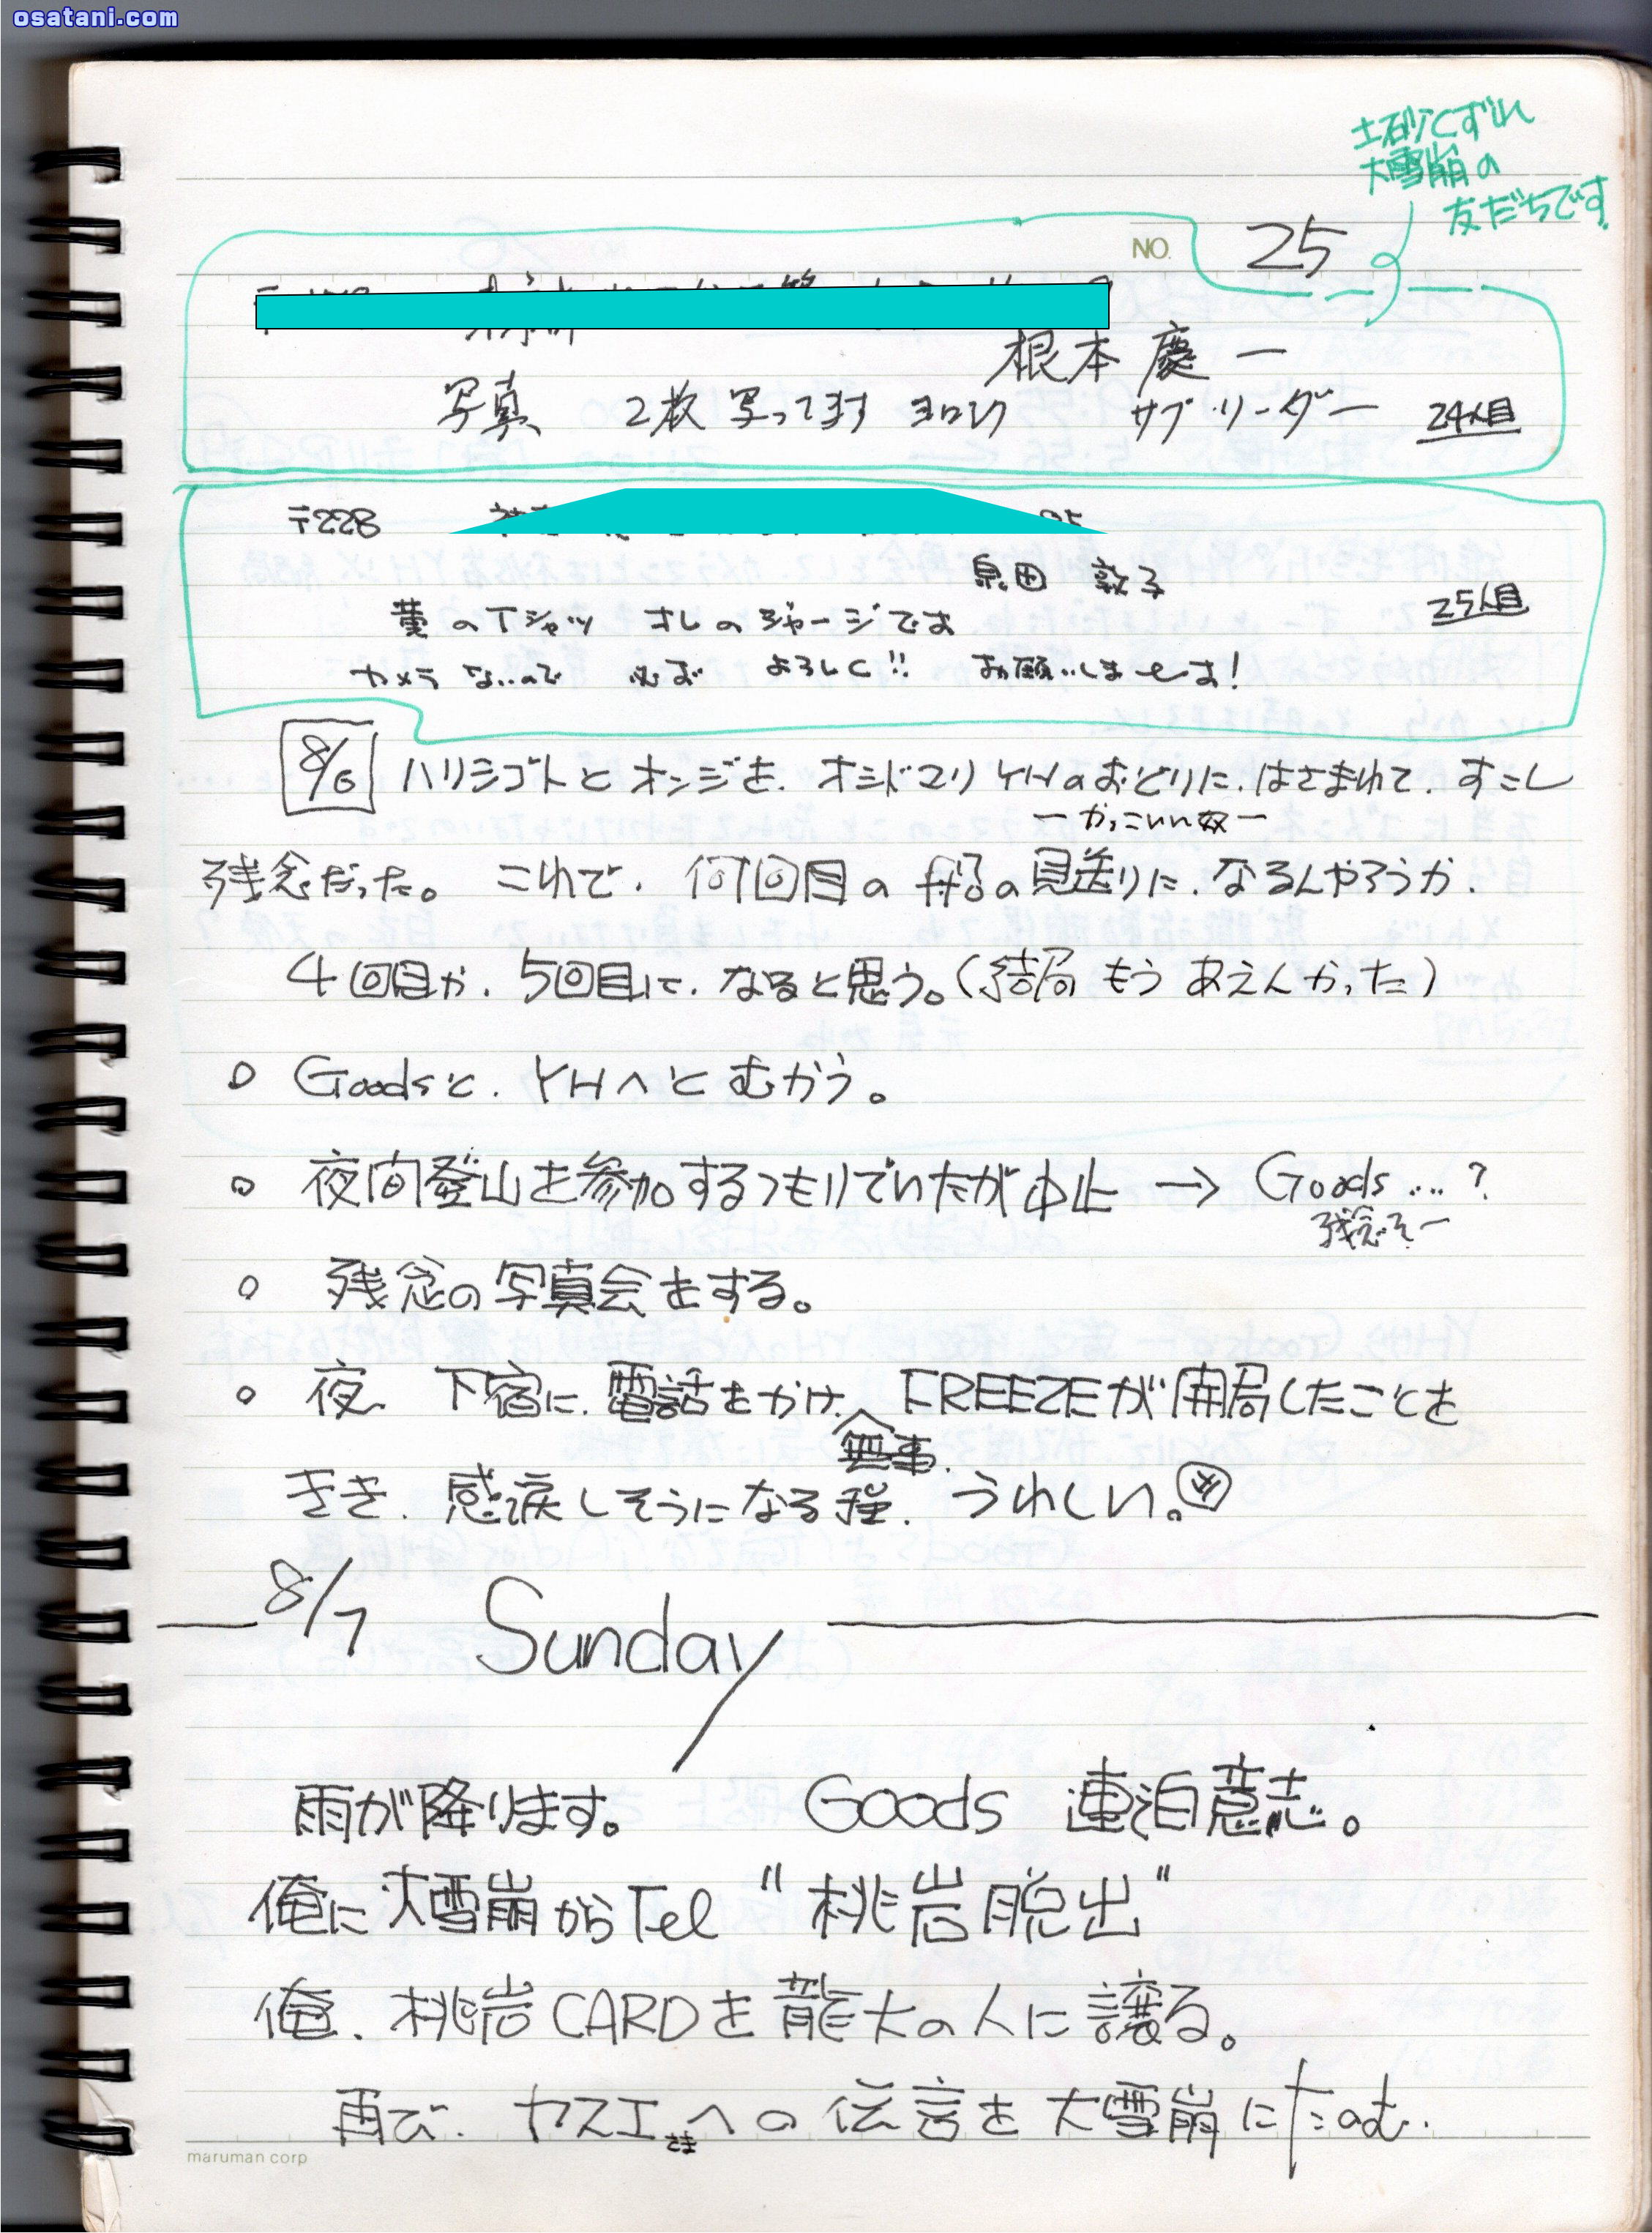 osatani.com
土砂くずれ
大雪崩の
友だちです
NO. 25
根本 慶一
写真 2枚 写ってます ヨロシク サブ・リーダー 24人目
〒228
泉田 敦子
菫のTシャツ オレのジャージです 25人目
カメラ ないので 必ず よろしく!! お願いしまーす!
8/6 ハリシゴトとオンジを、オシドマリYHのおどりに、はさまれて、すこし
ーかっこいい奴ー
残念だった。 これで、何回目の船の見送りに、なるんやろうか、
4回目か、5回目に、なると思う。(結局 もう あえんかった)
○ Goodsと、YHへと むかう。
○ 夜間登山を参加するつもりでいたが中止 → Goods …?
残念ぞー
○ 残念の写真会をする。
○ 夜、下宿に、電話をかけ、FREEZEが無事、開局したことを
きき、感涙しそうになる程、うれしい。
8/7 Sunday
雨が降ります。 Goods 連泊意志。
俺に大雪崩からTel "桃岩脱出"
俺、桃岩CARDを龍大の人に譲る。
再び、ヤスエさまへの伝言を大雪崩にたのむ.
maruman corp